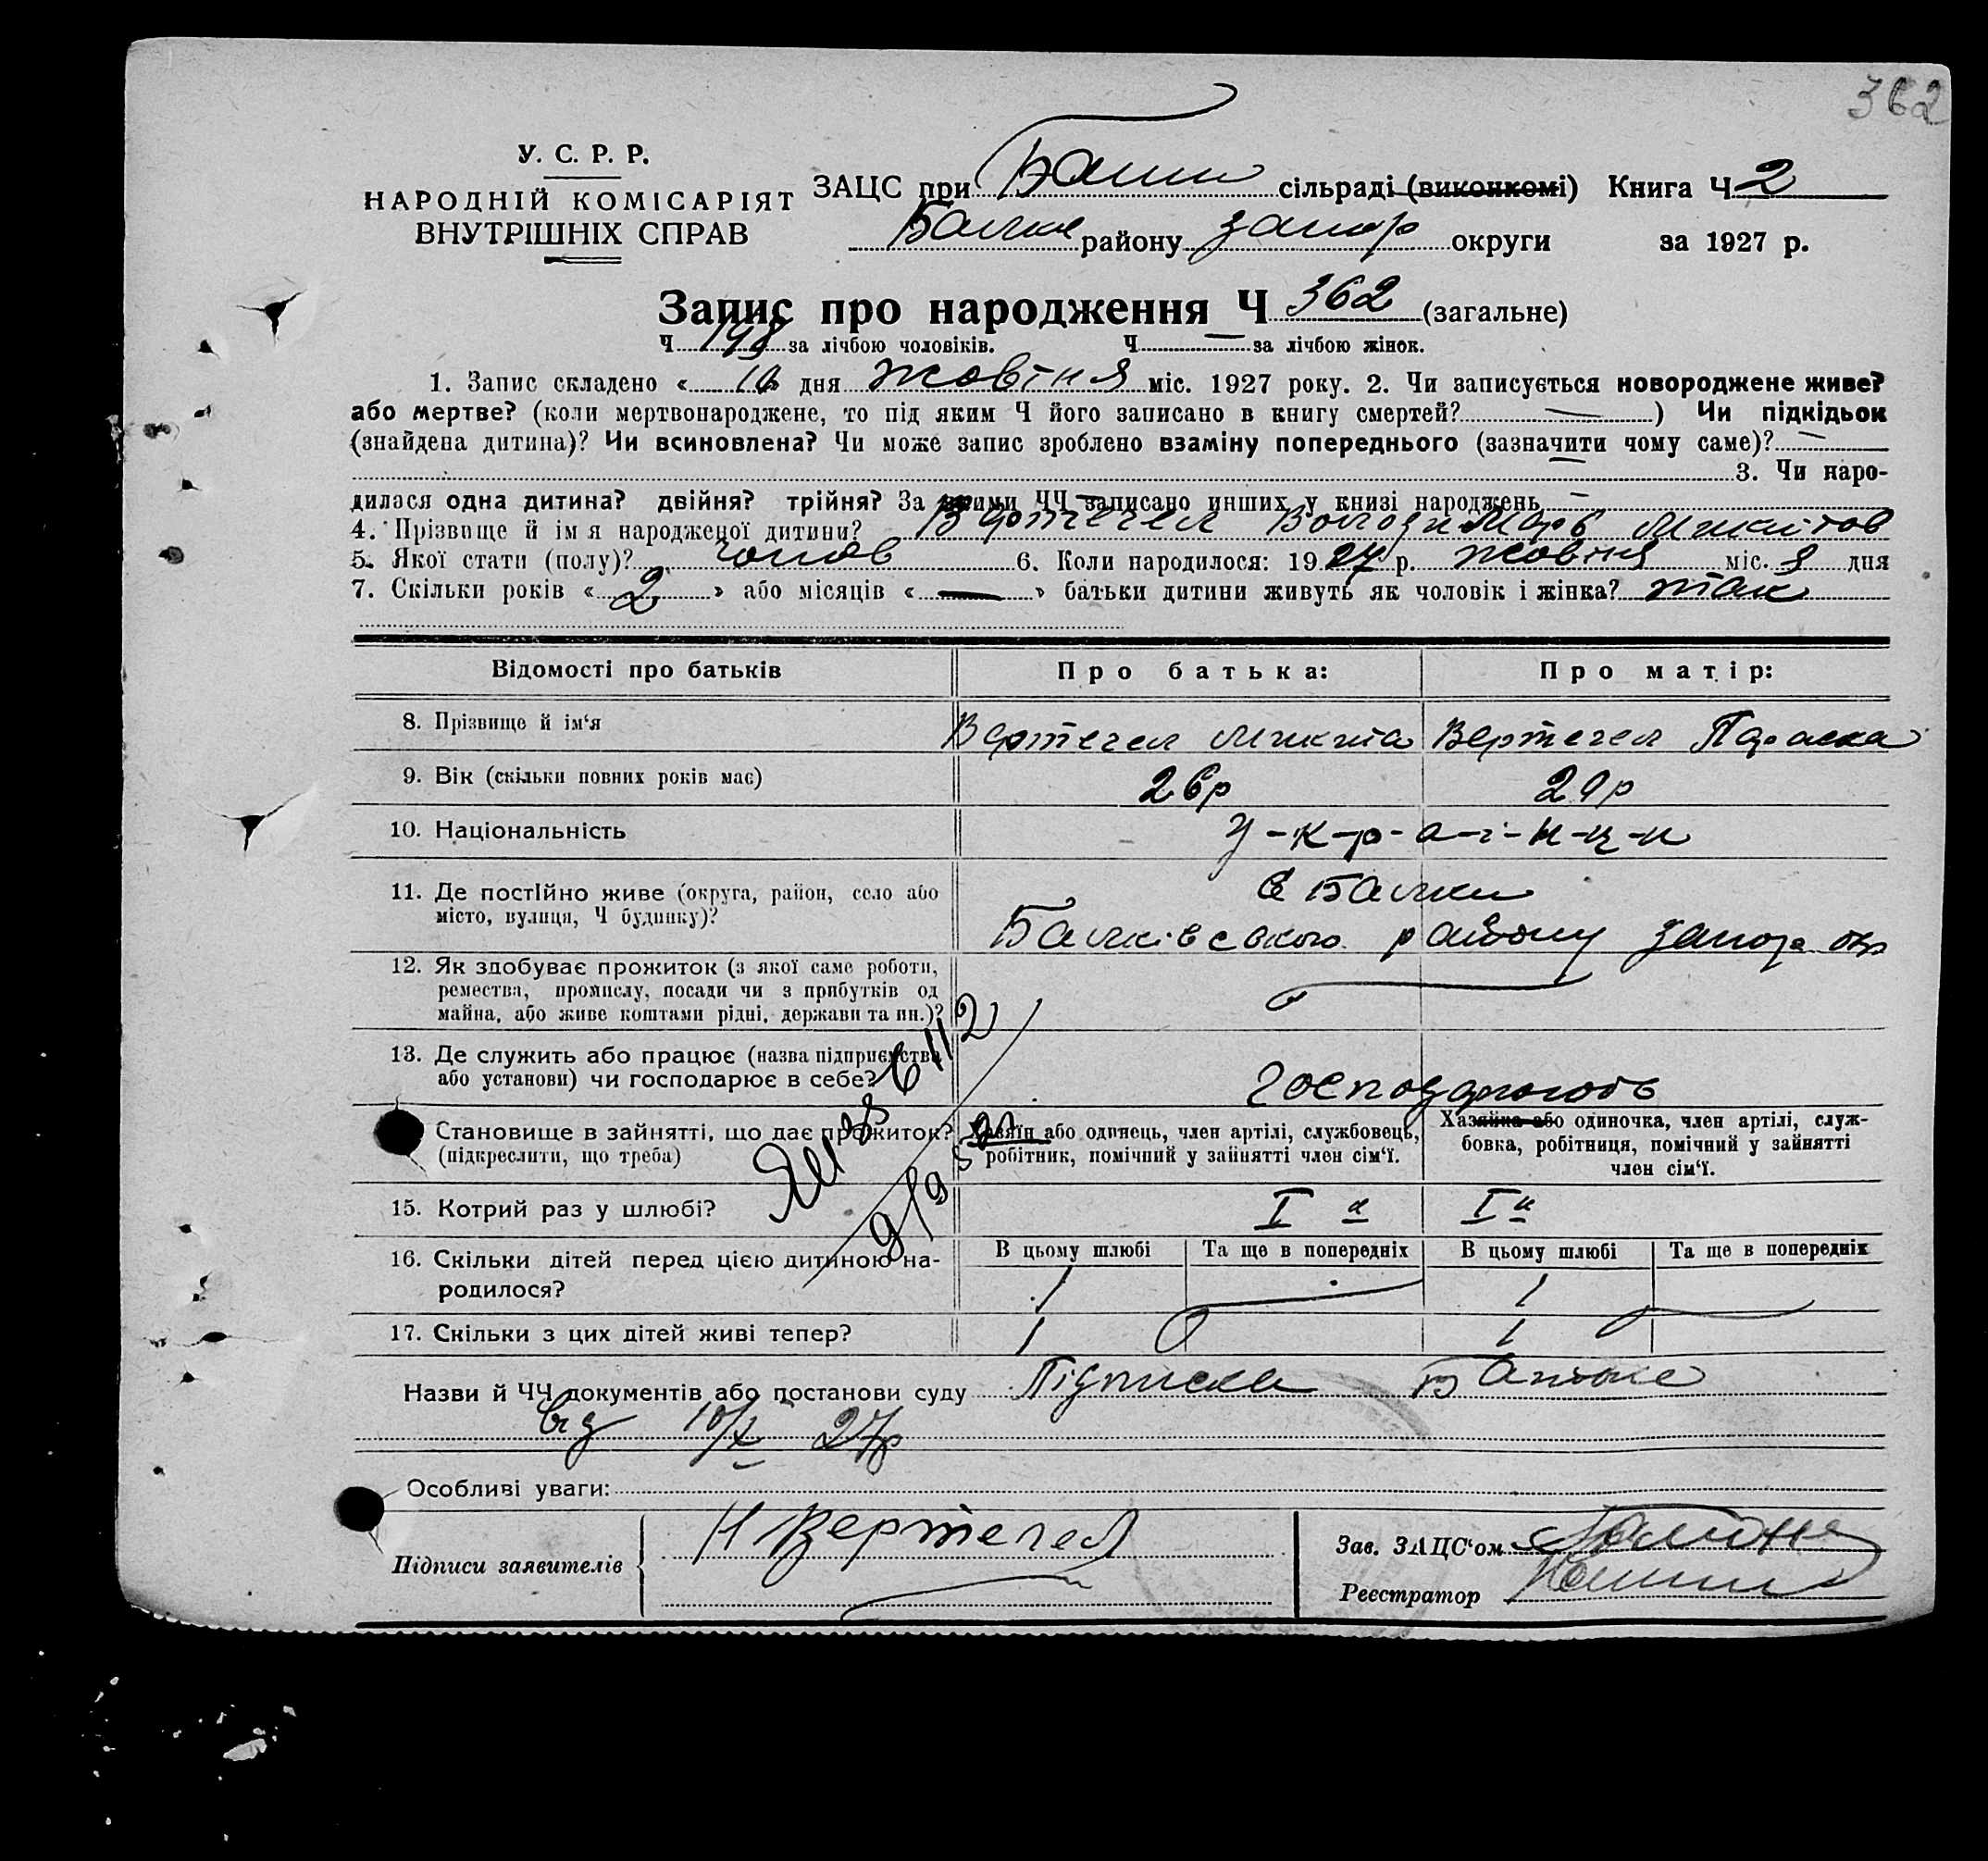 362
У. С. Р. Р.
НАРОДНІЙ КОМІСАРІЯТ
ВНУТРІШНІХ СПРАВ
ЗАЦС при сільраді (виконкомі) Книга Ч 2
Балки району запор округи за 1927 р.
Запис про народження Ч 362 (загальне)
Ч 198 за лічбою чоловіків. Ч — за лічбою жінок.
1. Запис складено « 10 дня жовтня міс. 1927 року. 2. Чи записується новороджене живе?
або мертве? (коли мертвонароджене, то під яким Ч його записано в книгу смертей? — ) Чи підкідьок
(знайдена дитина)? Чи всиновлена? Чи може запис зроблено взаміну попереднього (зазначити чому саме)? —
— 3. Чи наро-
дилася одна дитина? двійня? трійня? За якими ЧЧ записано инших у книзі народжень —
4. Прізвище й ім я народженої дитини? Вертегел Володимерь Микитов
5. Якої стати (полу)? чолов 6. Коли народилося: 1927 р. жовтня міс. 8 дня
7. Скільки років « 2 » або місяців « — » батьки дитини живуть як чоловік і жінка? так
Відомості про батьків Про батька: Про матір:
8. Прізвище й ім‘я Вертегел Микита Вертегел Параска
9. Вік (скільки повних років має) 26р 29р
10. Національність У-к-р-а-ї-н-ц-и
11. Де постійно живе (округа, район, село або с Балки
місто, вулиця, Ч будинку)? Балківського району запор окр
12. Як здобуває прожиток (з якої саме роботи,
ремества, промислу, посади чи з прибутків од
майна, або живе коштами рідні, держави та ин.)?
13. Де служить або працює (назва підприємства
або установи) чи господарює в себе? господарюють
Становище в зайнятті, що дає прожиток? Хазяїн або одинець, член артілі, службовець, Хазяйка або одиночка, член артілі, служ-
(підкреслити, що треба) робітник, помічний у зайнятті член сім‘ї. бовка, робітниця, помічний у зайнятті
член сім‘ї.
15. Котрий раз у шлюбі? I й I й
16. Скільки дітей перед цією дитиною на- В цьому шлюбі Та ще в попередніх В цьому шлюбі Та ще в попередніх
родилося? 1 — 1 —
17. Скільки з цих дітей живі тепер? 1 1
Назви й ЧЧ документів або постанови суду Підписка Батька
від 10/X 27р
Особливі уваги:
Підписи заявителів Н Вертегел
Зав. ЗАЦС‘ом
Реєстратор